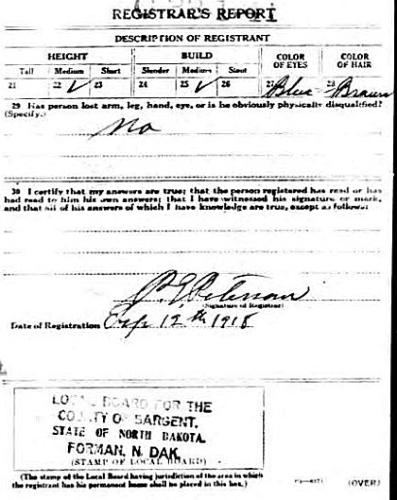 REGISTRAR'S REPORT
DESCRIPTION OF REGISTRANT
HEIGHT BUILD COLOR OF EYES COLOR OF HAIR
Tall Medium Short Slender Medium Stout
21 22 ✓ 23 24 25 ✓ 26 27 Blue 28 Brown
29 Has person lost arm, leg, hand, eye, or is he obviously physically disqualified?
(Specify.)
No
30 I certify that my answers are true; that the person registered has read or has
had read to him his own answers; that I have witnessed his signature or mark,
and that all of his answers of which I have knowledge are true, except as follows:
Peterson
(Signature of Registrar)
Date of Registration 12th 1918
LOCAL BOARD FOR THE
COUNTY OF SARGENT,
STATE OF NORTH DAKOTA.
FORMAN, N. DAK.
(STAMP OF LOCAL BOARD)
(The stamp of the Local Board having jurisdiction of the area in which
the registrant has his permanent home shall be placed in this box.)
(OVER)